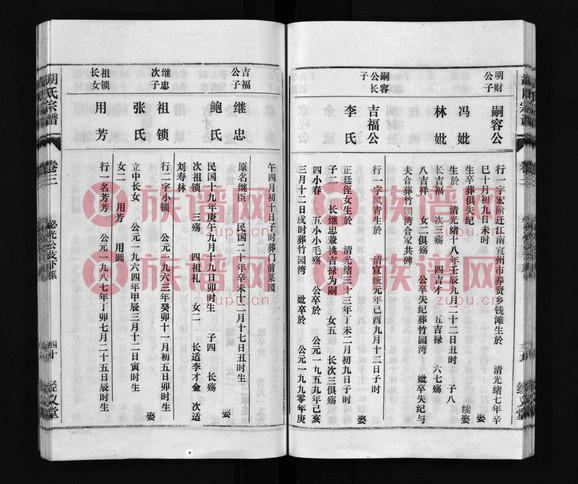 明财公子
嗣容公
冯妣
林妣
行一字宏阶迁江南宣州市养贤乡钱滩生於 清光绪七年辛
巳十月初九日未时 娶
生卒葬俱失纪 续娶
生於 清光绪十八年壬辰九月二十二日丑时 子八
长吉福 次三殇 四吉才 五吉禄 六七殇
八吉祥 女二俱殇 公卒失纪葬竹园湾 妣卒失纪与
夫合葬竹园湾合冢共碑
嗣容公长子
吉福公
李氏
行一字凤青生於 清宣统元年己酉九月十二日子时
娶
正廷侄女生於 清光绪三十三年丁未二月初九日子时
子一 长继忠兼祧吉禄为嗣 女五 长次三殇
四小春 五小小毛殇 公卒於 公元一九五九年己亥
三月十二日戌时葬竹园湾 妣卒於 公元一九九零年庚
午四月初十日子时葬门前菜园
吉福公子
继忠
鲍氏
原名继臣 民国二十年辛未十二月十七日丑时生
娶
民国十九年庚午九月十九日卯时生 子四 长殇
次祖锁 三殇 四祖礼 女二 长适李才金 次适
刘寿林
继忠次子
祖锁
张氏
行二字小锁 公元一九六三年癸卯十一月初五日卯时生
娶
立中长女 公元一九六四年甲辰三月十二日寅时生
女二 用芳 用圆
祖锁长女
用芳
行一名芳芳 公元一九八七年丁卯七月二十五日辰时生
胡氏宗谱
卷三
四十
经义堂
族谱网
zupu.cn